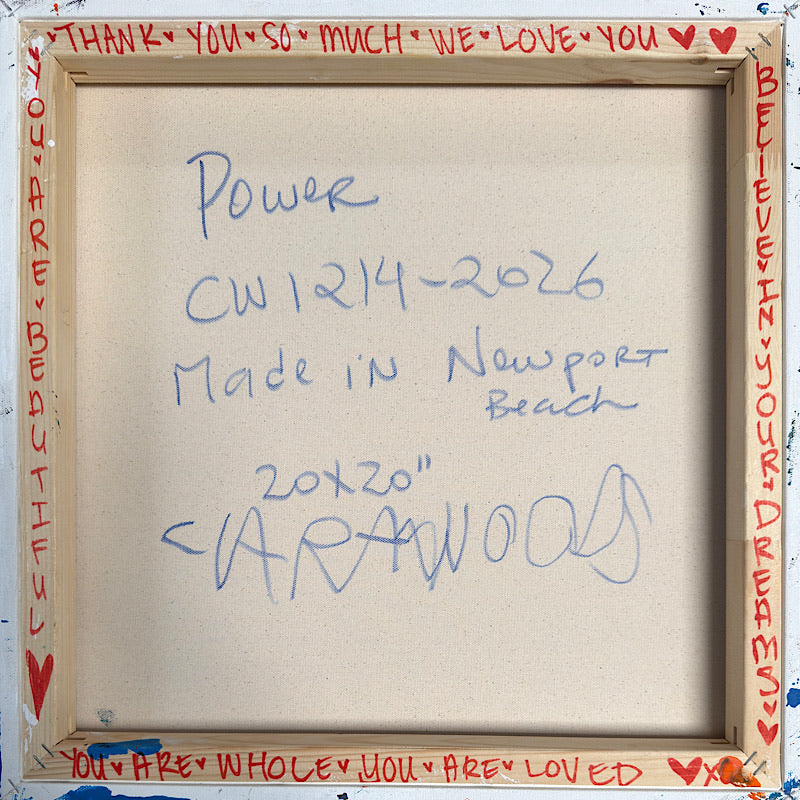 THANK ♥ YOU ♥ SO ♥ MUCH ♥ WE ♥ LOVE ♥ YOU ♥ ♥
YOU ♥ ARE ♥ BEAUTIFUL ♥
BELIEVE ♥ IN ♥ YOUR ♥ DREAMS ♥ ♥
Power
CW1214-2026
Made in Newport
Beach
20x20"
CARAWOODS
YOU ♥ ARE ♥ WHOLE ♥ YOU ♥ ARE ♥ LOVED ♥xo